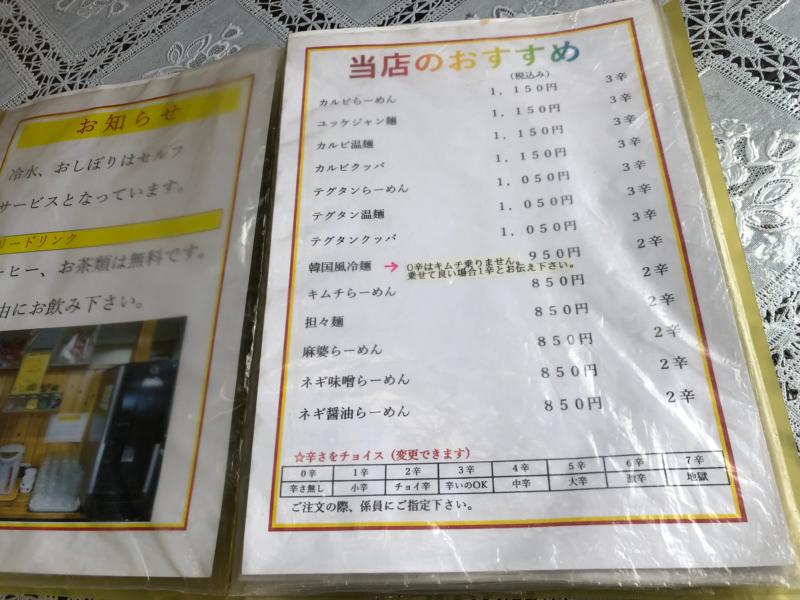 お知らせ
冷水、おしぼりはセルフ
サービスとなっています。
リードリンク
ーヒー、お茶類は無料です。
由にお飲み下さい。
当店のおすすめ
(税込み)
カルビらーめん 1,150円 3辛
ユッケジャン麺 1,150円 3辛
カルビ温麺 1,150円 3辛
カルビクッパ 1,150円 3辛
テグタンらーめん 1,050円 3辛
テグタン温麺 1,050円 3辛
テグタンクッパ 1,050円 3辛
韓国風冷麺 → 0辛はキムチ乗りません。 950円 2辛
乗せて良い場合1辛とお伝え下さい。
キムチらーめん 850円 2辛
担々麺 850円 2辛
麻婆らーめん 850円 2辛
ネギ味噌らーめん 850円 2辛
ネギ醤油らーめん 850円 2辛
☆辛さをチョイス(変更できます)
0辛 1辛 2辛 3辛 4辛 5辛 6辛 7辛
辛さ無し 小辛 チョイ辛 辛いのOK 中辛 大辛 激辛 地獄
ご注文の際、係員にご指定下さい。